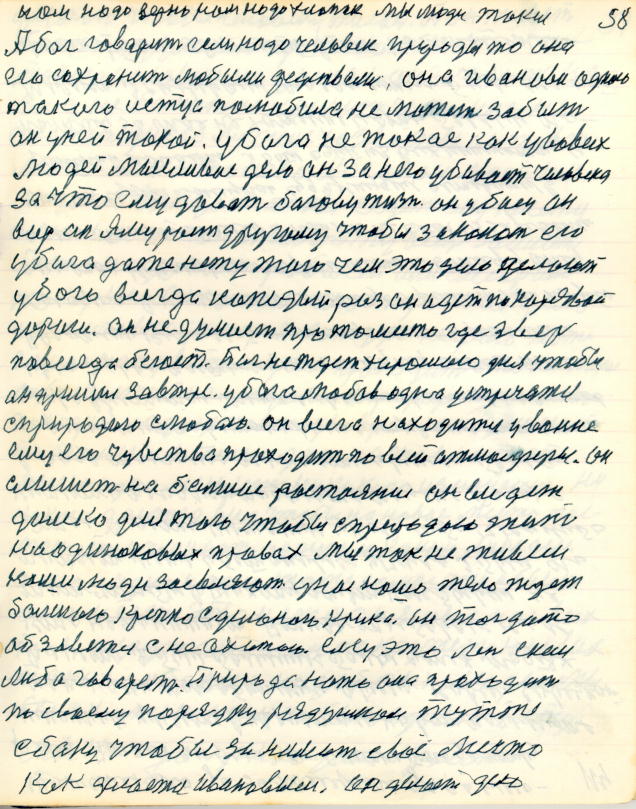 нам надо зерно нам надо хлопак мы люди такии 58
А бог говарит если надо человек природы то она
его сохранит любыми средствами, она Иванова одного
такого истца полюбила не может забыт
он у ней такой. у бога не такое как у всех
людей мысливое дело он за него убивает человека
за что ему давать богову жизн. он у бога он
вор он яму роет другому чтобы законом его
у бога даже нету того чем это дело делают
у бога всегда каждый раз он идет по
дороги. он не думает про то место где звер
повсегда бегает. Бог не ждет хорошего дня чтобы
он пришел завтре. у бога любов одна устречатся
с природою с любою. он всего находится у
ему его чувства проходит по всей атмосферы. он
слышет на болшие растояния он видет
далеко для того чтобы с природою жить
на одинаковых правах мы так не живем
наши люди заевляют у нас наше тело ждет
болшого крепко сделоного крика. он тогда то
с неохотою. ему это
либо говарет. Природа она проходит
по своему порядку рядушком тут же
с боку чтобы занимат своё место
как делается Ивановым. он делает дело